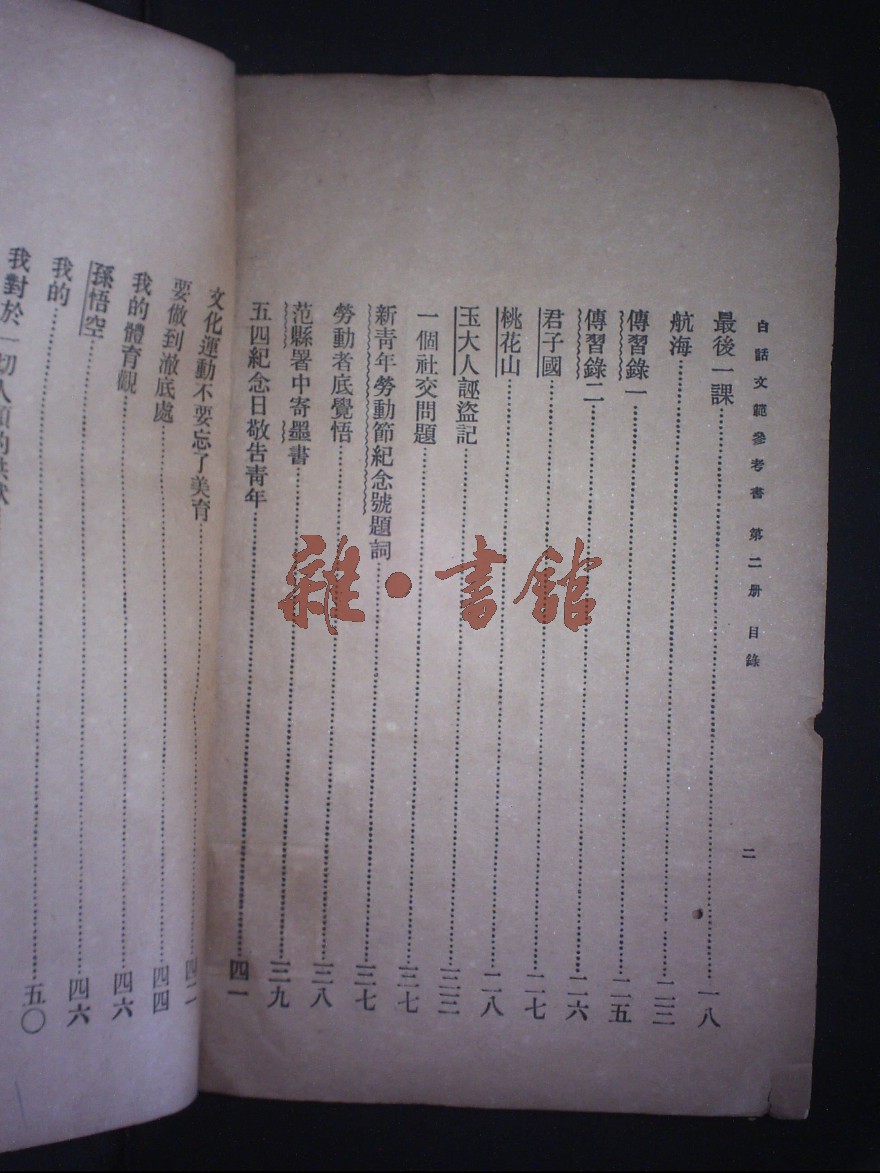 白話文範參考書 第二册 目錄 二
最後一課……一八
航海……二三
傳習錄一……二五
傳習錄二……二六
君子國……二七
桃花山……二八
玉大人誣盜記……三三
一個社交問題……三七
新靑年勞動節紀念號題詞……三七
勞動者底覺悟……三八
范縣署中寄墨書……三九
五四紀念日敬告靑年……四一
文化運動不要忘了美育……四二
要做到澈底處……四四
我的體育觀……四六
孫悟空……四六
我的……五〇
我對於一切人類的
雜·書館